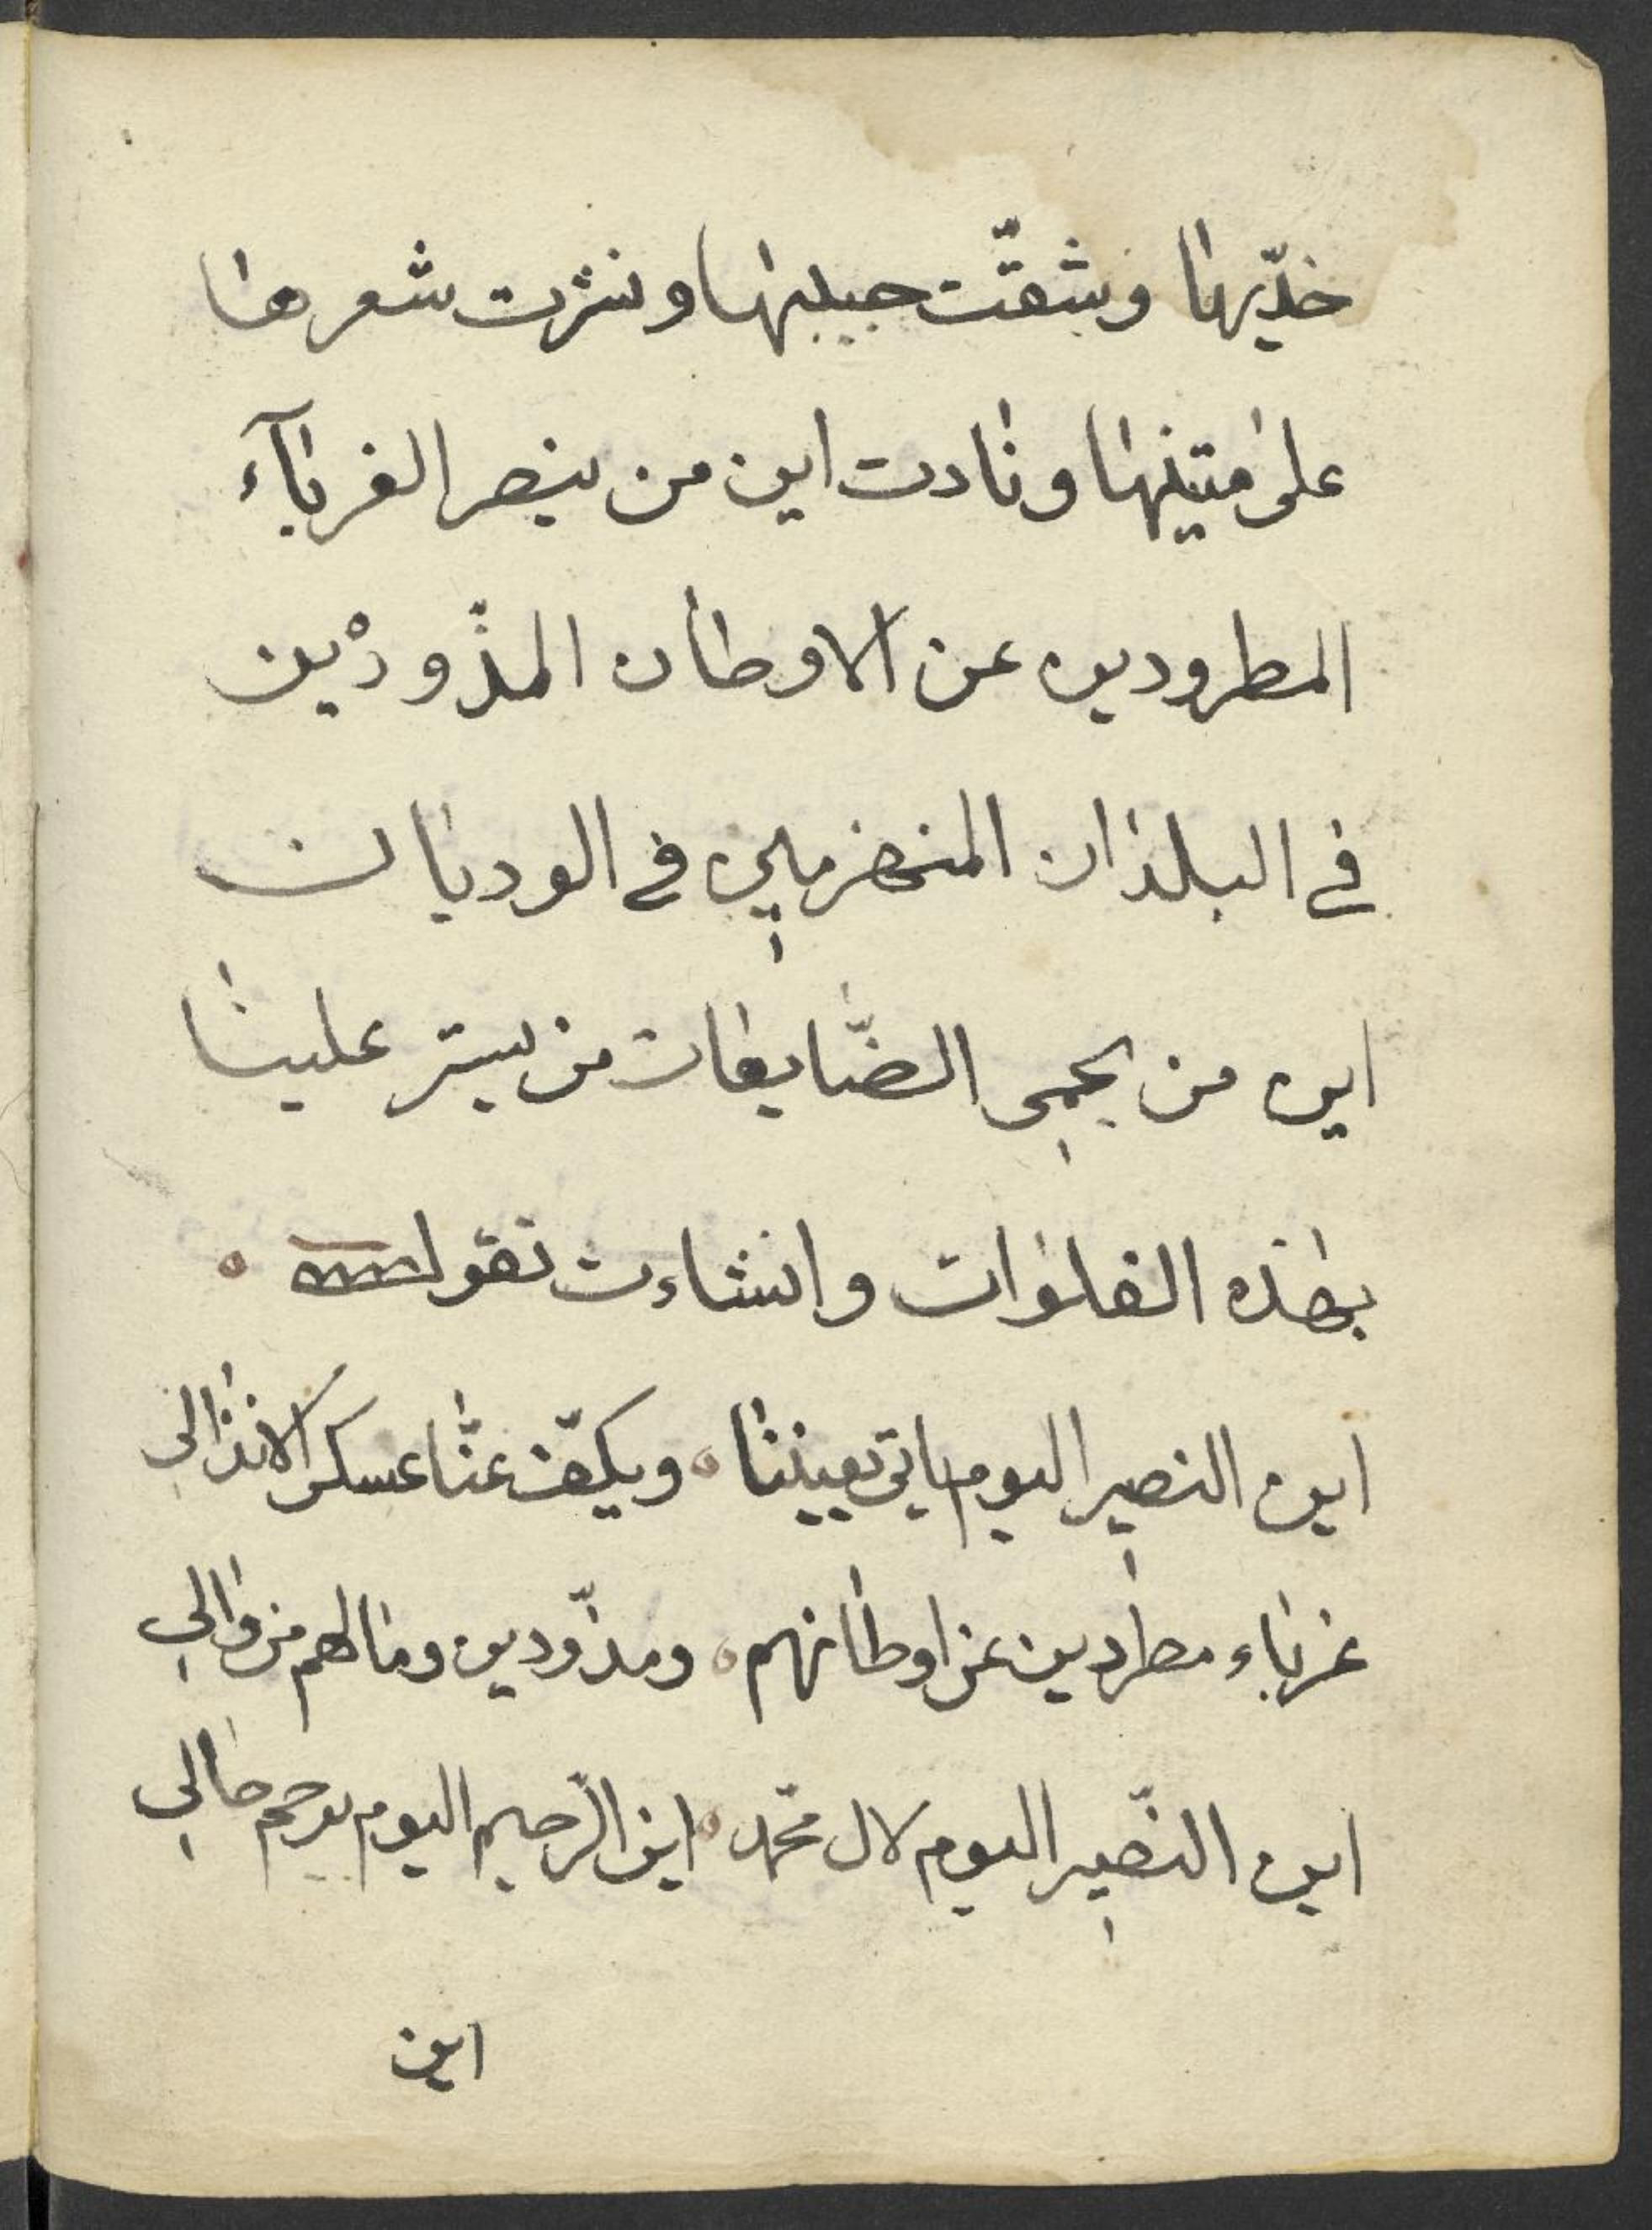 خدّيها وشقّت جيبها ونثرت شعرها
على متنيها ونادت اين من ينصر الغربآء
المطرودين عن الاوطان المذّودين
في البلدان المنهزمين في الوديان
اين من يحمي الضّايعات من يستر علينا
بهذه الفلوات وانشاءت تقول
اين النصير اليوم ياتي يعيننا ويكفّ عنّا عسكر الانذالي
غرباء مطردين عن اوطانهم ومذّودين وما لهم من والي
اين النّصير اليوم لال محمّد اين الرّحيم اليوم يرحم حالي
اين